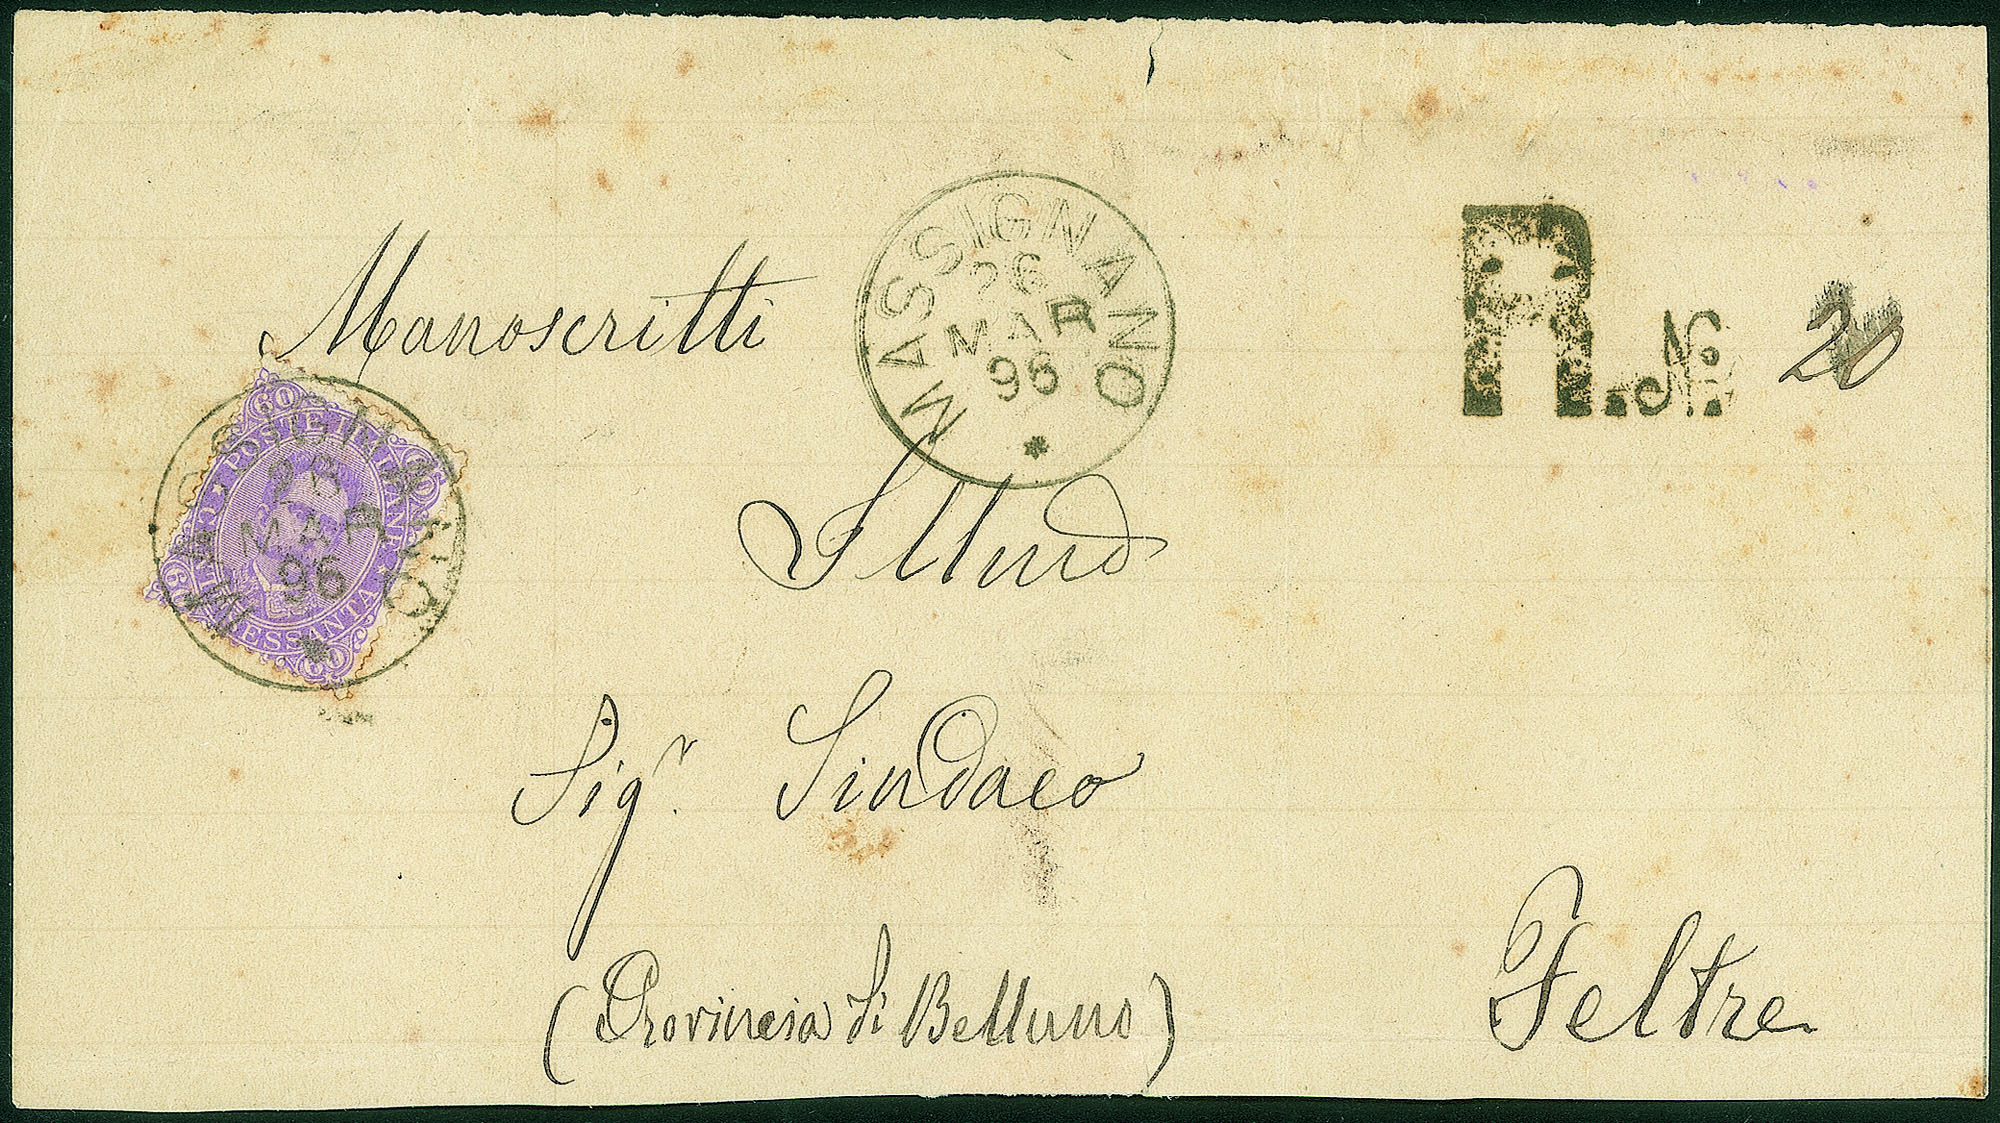 Manoscritti
MASSIGNANO
26
MAR
96
R. No 20
60 POSTE ITALIANE 60
CENT. SESSANTA
60 60
26
MAR
96
Illmo
Sigr. Sindaco
(Provincia di Belluno)
Feltre